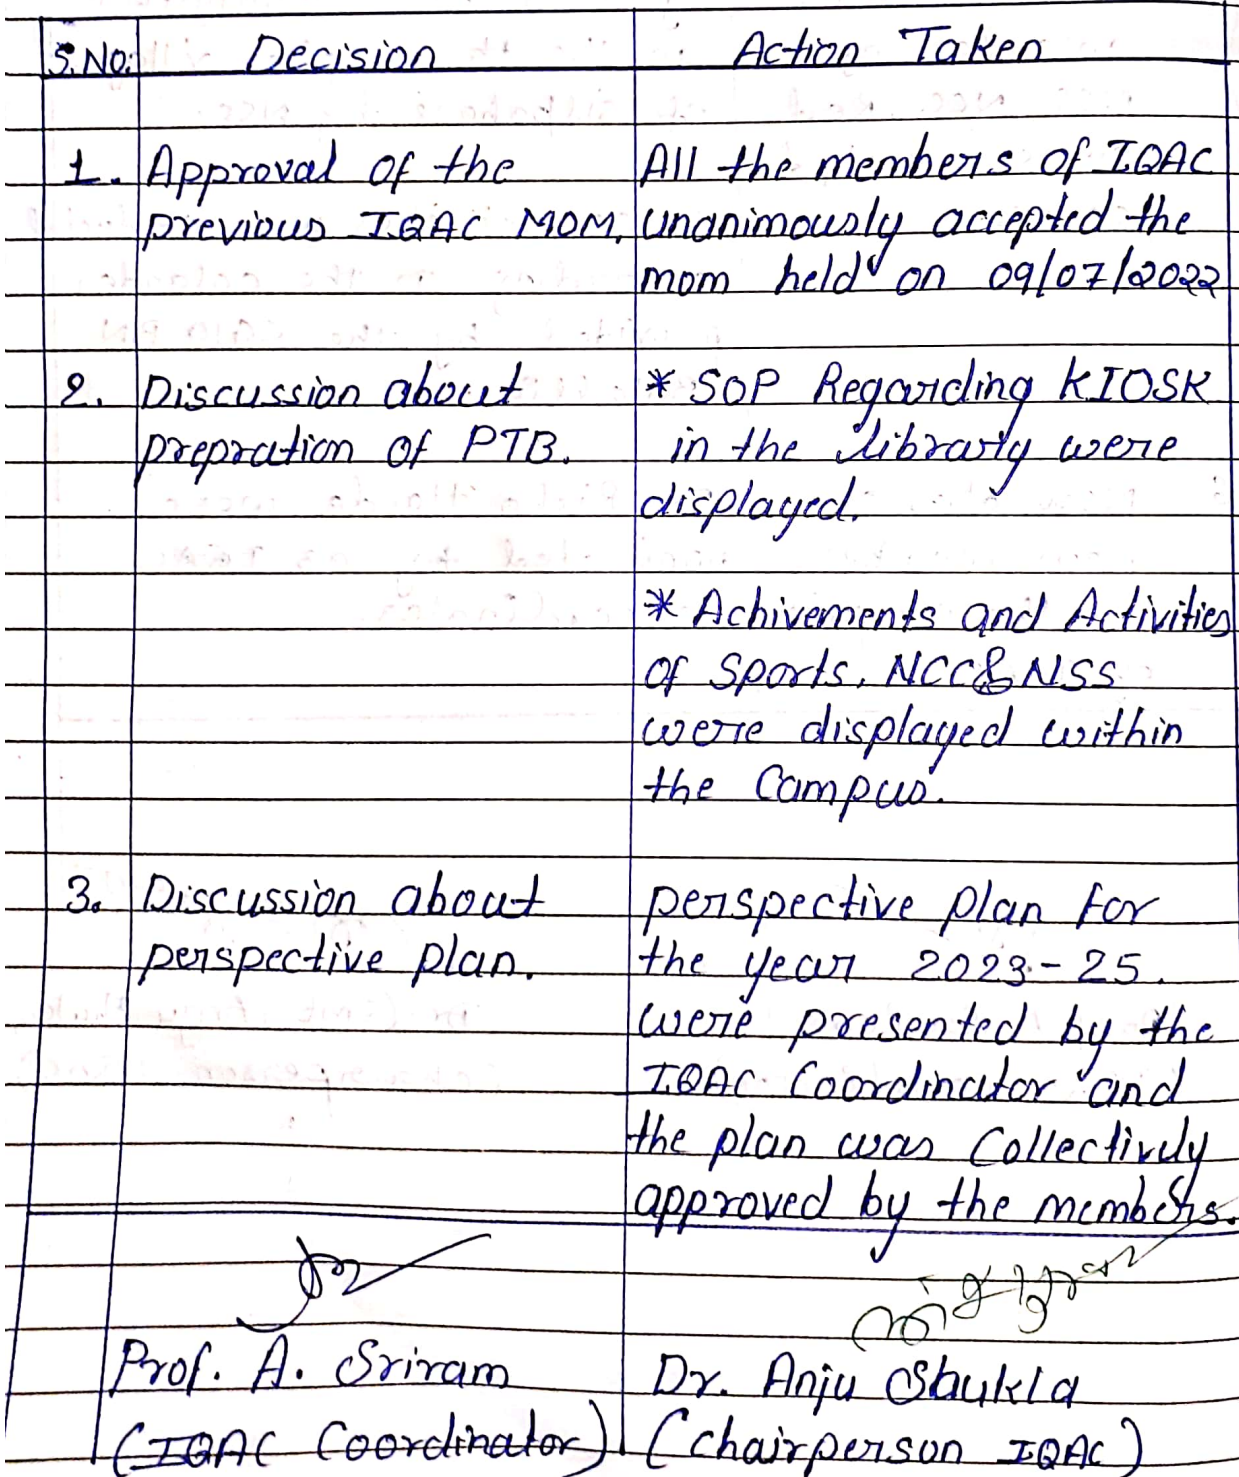 S.No. Decision Action Taken
1. Approval of the
previous IQAC MOM.
All the members of IQAC
unanimously accepted the
mom held on 09/07/2022
2. Discussion about
prepration of PTB.
* SOP Regarding KIOSK
in the library were
displayed.
* Achivements and Activities
of Sports, NCC & NSS
were displayed within
the Campus.
3. Discussion about
perspective plan.
perspective plan for
the year 2023-25.
were presented by the
IQAC Coordinator and
the plan was Collectively
approved by the members.
Prof. A. Sriram
(IQAC Coordinator)
Dr. Anju Shukla
(Chairperson IQAC)